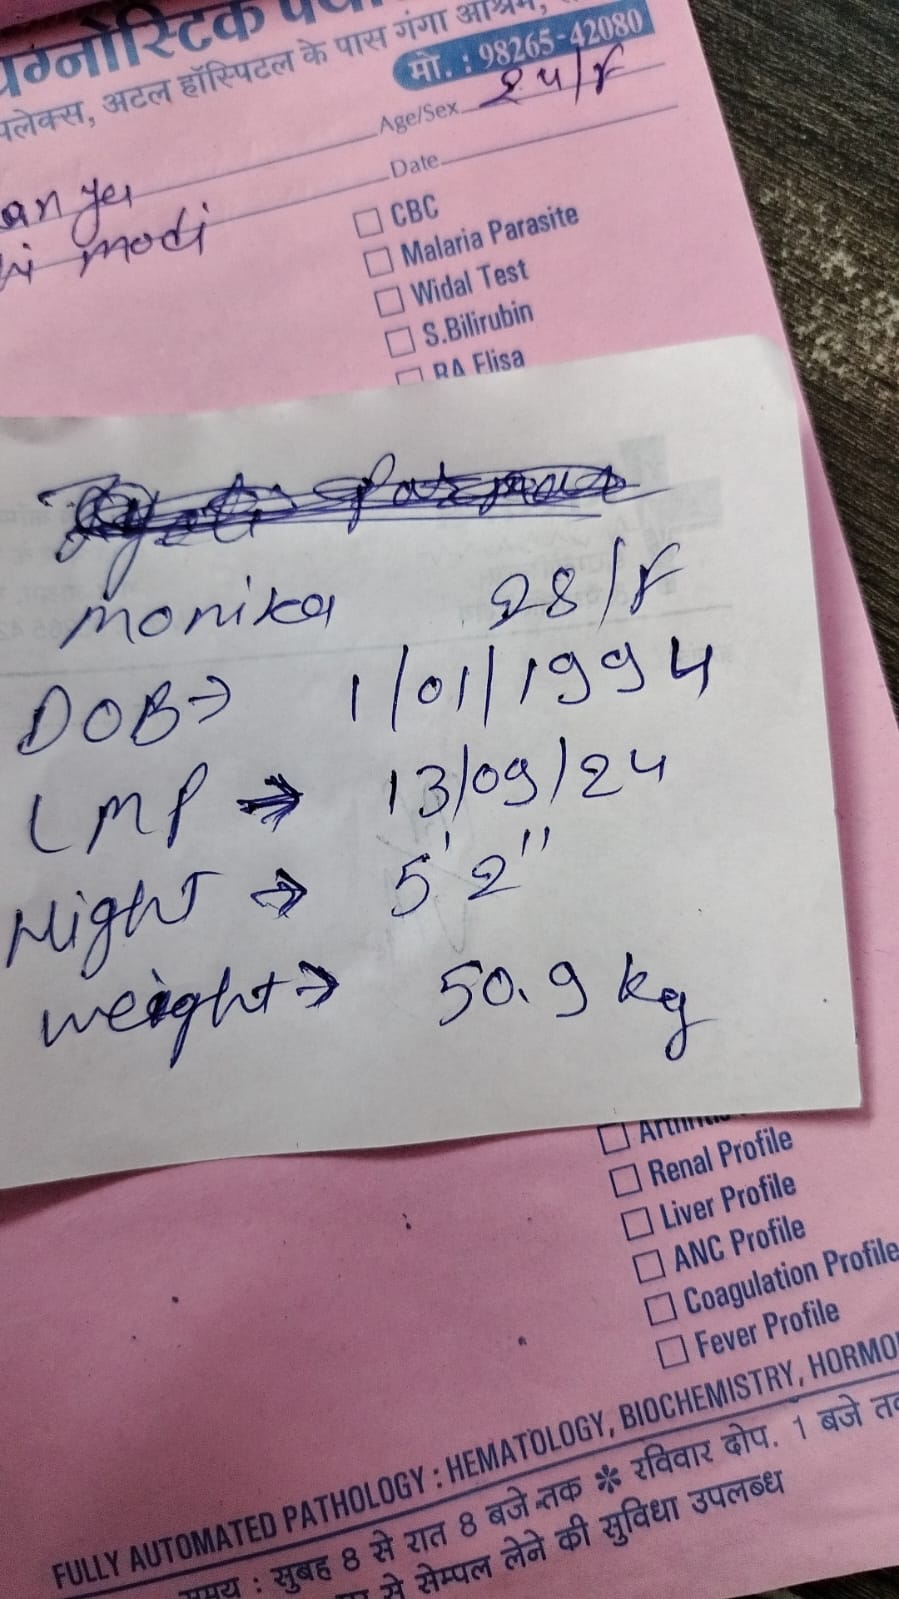 ग्नोस्टिक
पलेक्स, अटल हॉस्पिटल के पास गंगा आश्रम,
मो. : 98265-42080
Age/Sex 24/F
Date
modi
CBC
Malaria Parasite
Widal Test
S.Bilirubin
RA Elisa
monika 28/F
DOB→ 1/01/1994
LMP → 13/09/24
Hight → 5'2"
weight→ 50.9 kg
Renal Profile
Liver Profile
ANC Profile
Coagulation Profile
Fever Profile
FULLY AUTOMATED PATHOLOGY : HEMATOLOGY, BIOCHEMISTRY, HORMO
समय : सुबह 8 से रात 8 बजे तक * रविवार दोप. 1 बजे तक
से सेम्पल लेने की सुविधा उपलब्ध